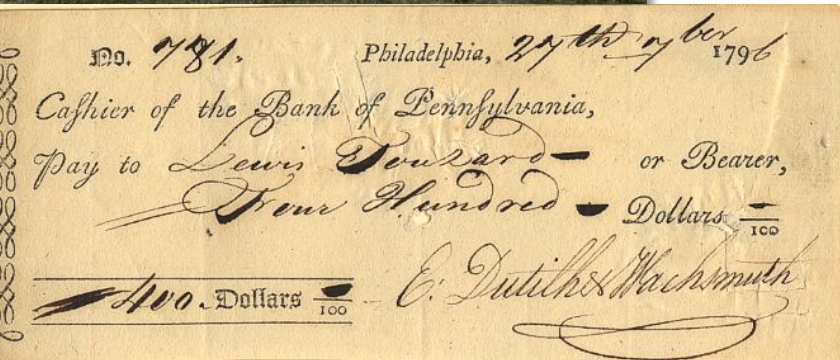 No. 781. Philadelphia, 27th 7ber 1796
Caſhier of the Bank of Pennſylvania,
Pay to Lewis Touzard or Bearer,
Four Hundred Dollars /100
400 Dollars /100 E: Dutilh & Wachsmuth